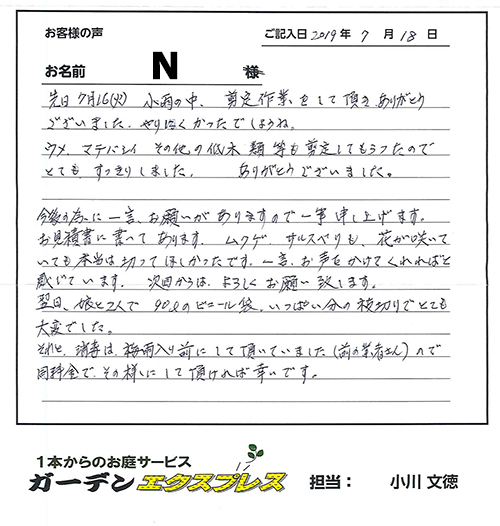 お客様の声
ご記入日 2019年 7月 18日
お名前 N 様
先日7月16(火) 小雨の中、剪定作業をして頂き、ありがとう
ございました。やりにくかったでしょうね。
ウメ、マテバシイ その他の低木類等も剪定してもらったので
とても すっきりしました。 ありがとうございました。
今後の為に一言、お願いがありますので一筆申し上げます。
お見積書に書いてあります、ムクゲ、サルスベリも、花が咲いて
いても本当は切ってほしかったです。一言、お声をかけてくれればと
感じています。次回からは、よろしくお願い致します。
翌日、娘と2人で 90ℓのビニール袋、いっぱい分の枝切りでとても
大変でした。
それと、消毒は、梅雨入り前にして頂いていました(前の業者さん)ので
同料金で、その様にして頂ければ幸いです。
1本からのお庭サービス
ガーデンエクスプレス 担当: 小川 文徳